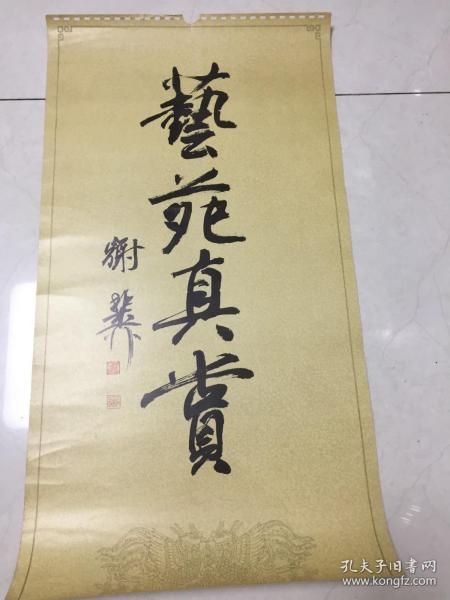 藝苑真賞
謝
孔夫子旧书网
www.kongfz.com